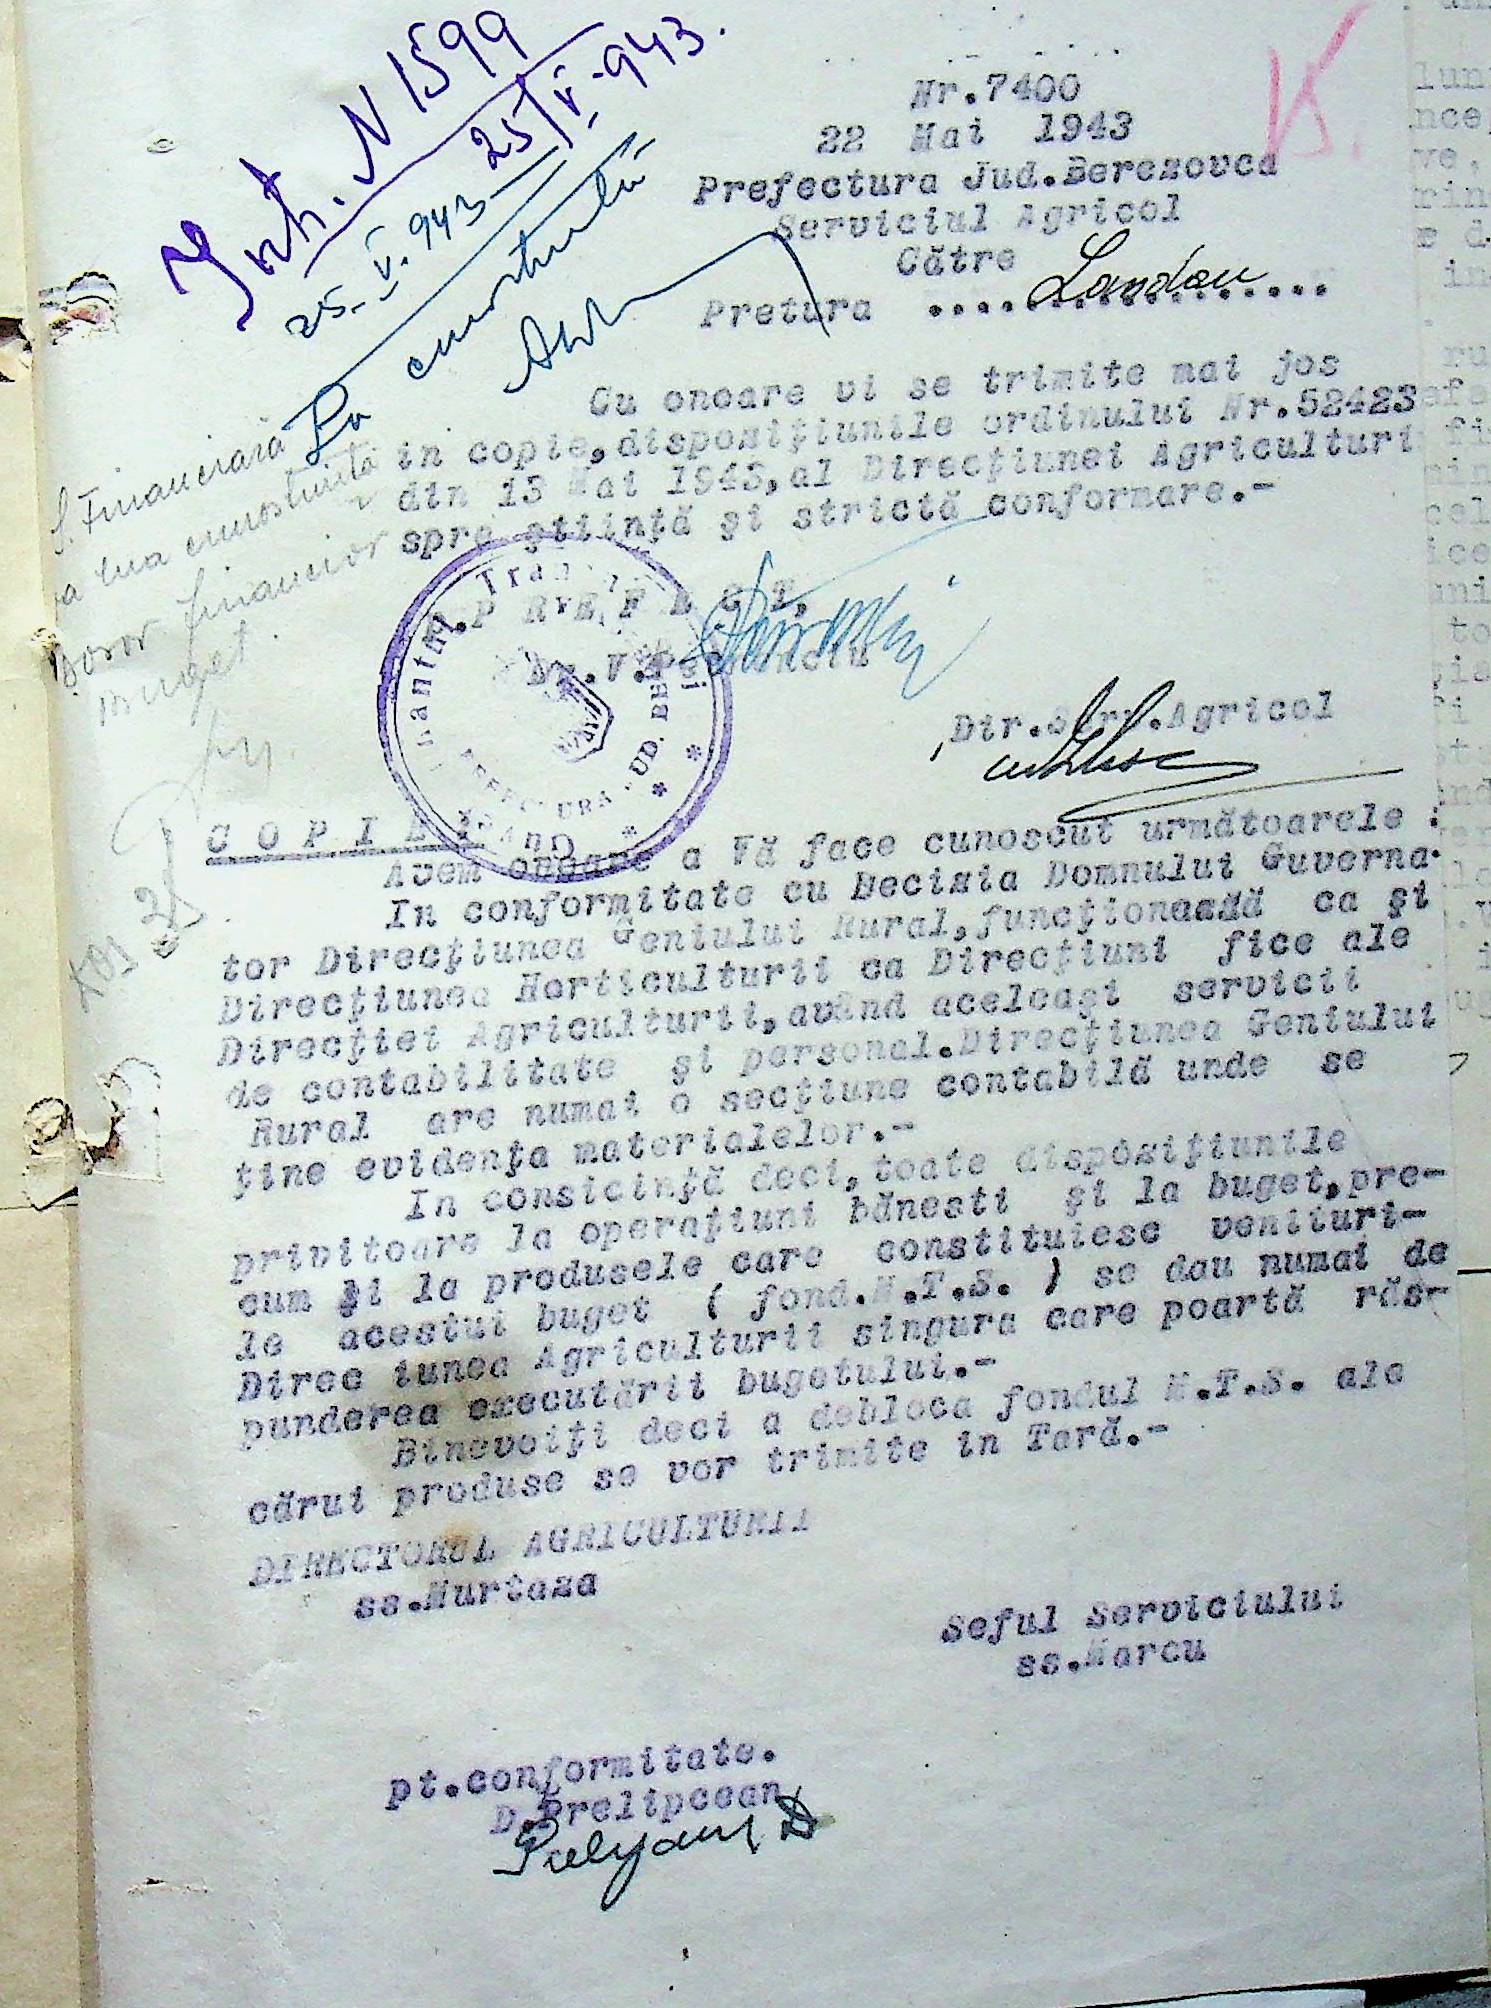 Int. N 1599
25/V.943.
25.V.943
La cunostintă
Nr.7400
22 Mai 1943
Prefectura Jud.Berezovca
Serviciul Agricol
Către
Pretura .... Landau
Cu onoare vi se trimite mai jos
in copie,dispozițiunile ordinului Nr.52423
din 13 Mai 1943,al Direcțiunei Agriculturi
spre știință și strictă conformare.-
S. Financiară
va lua cunostință
financiar
buget
p.P R E F E C T,
Dir.Serv.Agricol
PREFECTURA JUD. BE
C O P I E
Avem onoare a Vă face cunoscut următoarele :
In conformitate cu Decizia Domnului Guverna-
tor Direcțiunea Geniului Rural,funcționează ca și
Direcțiunea Horticulturii ca Direcțiuni fice ale
Direcției Agriculturii,având aceleași servicii
de contabilitate și personal.Direcțiunea Geniului
Rural are numai o secțiune contabilă unde se
ține evidența materialelor.-
In consicință deci,toate dispozițiunile
privitoare la operațiuni bănesti și la buget,pre-
cum și la produsele care constituiesc venituri-
le acestui buget ( fond.M.T.S. ) se dau numai de
Direc iunea Agriculturii singura care poartă răs-
punderea executării bugetului.-
Binevoiți deci a debloca fondul M.T.S. ale
cărui produse se vor trimite in Tară.-
DIRECTORUL AGRICULTURII
ss.Murtaza
Seful Serviciului
ss.Marcu
pt.conformitate.
D.Prelipcean